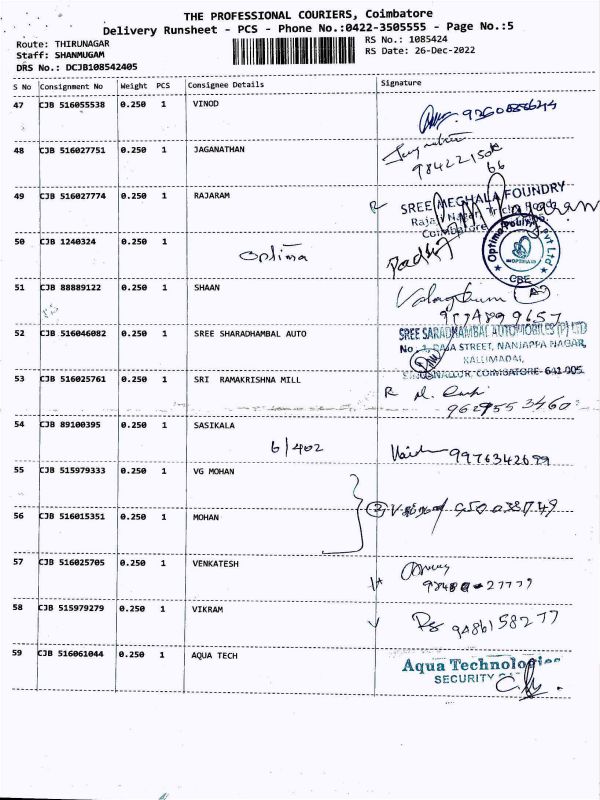 THE PROFESSIONAL COURIERS, Coimbatore
Delivery Runsheet - PCS - Phone No.:0422-3505555 - Page No.:5
Route: THIRUNAGAR
Staff: SHANMUGAM
DRS No.: DCJB108542405
RS No.: 1085424
RS Date: 26-Dec-2022
S No Consignment No Weight PCS Consignee Details Signature
47 CJB 516055538 0.250 1 VINOD
48 CJB 516027751 0.250 1 JAGANATHAN
49 CJB 516027774 0.250 1 RAJARAM
SREE MEGHALA FOUNDRY
Coimbatore
50 CJB 1240324 0.250 1 Optima
Optima Poultry Pvt Ltd
CBE
51 CJB 88889122 0.250 1 SHAAN
52 CJB 516046082 0.250 1 SREE SHARADHAMBAL AUTO
SREE SARADHAMBAL AUTOMOBILES (P) LTD
RAJA STREET, NANJAPPA NAGAR,
KALLIMADAI,
SINGNALLUR, COIMBATORE- 641 005.
53 CJB 516025761 0.250 1 SRI RAMAKRISHNA MILL
R
9629553460
54 CJB 89100395 0.250 1 SASIKALA
6/402
9976342699
55 CJB 515979333 0.250 1 VG MOHAN
56 CJB 516015351 0.250 1 MOHAN
57 CJB 516025705 0.250 1 VENKATESH
58 CJB 515979279 0.250 1 VIKRAM
9486158277
59 CJB 516061044 0.250 1 AQUA TECH
Aqua Technologies
SECURITY